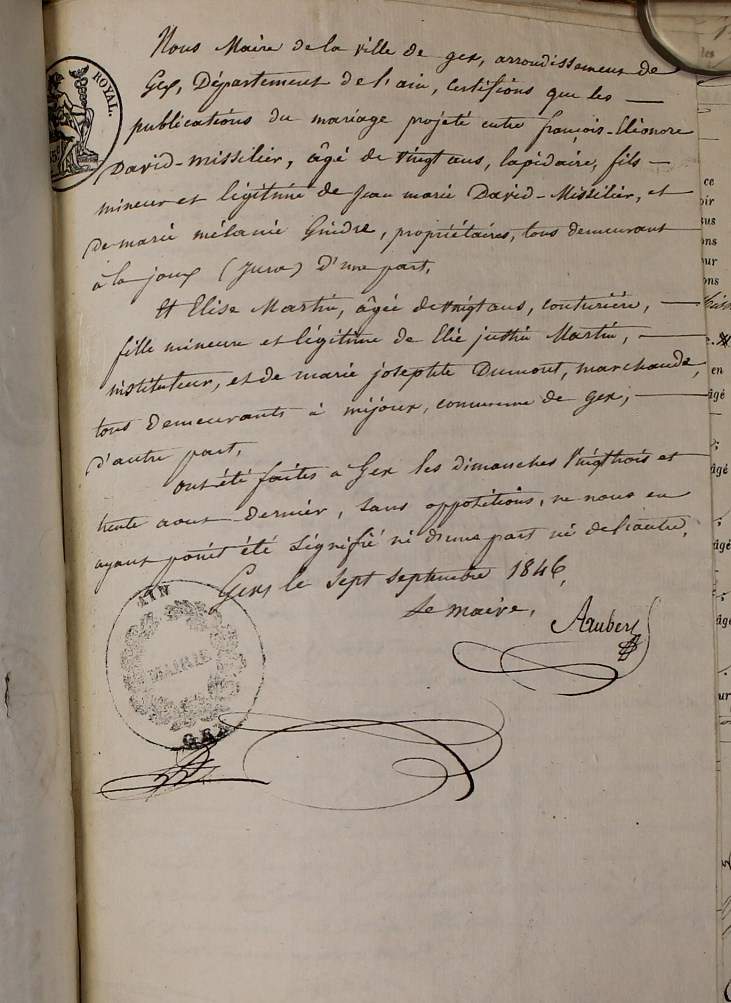 Nous Maire de la ville de gex, arrondissement de
Gex, Département de l'ain, Certifions que les —
publications du mariage projeté entre françois-Eléonore
David-missilier, âgé de vingt ans, lapidaire, fils —
mineur et légitime de jean marie David-Missilier, et
de marie mélanie Gindre, propriétaires, tous demeurant
à la joux (Jura) d'une part,
Et Elise Martin, âgée de vingt ans, couturière, —
fille mineure et légitime de Elie justin Martin, —
instituteur, et de marie josephte Dumont, marchande,
tous demeurants à mijoux, commune de Gex, —
d'autre part,
ont été faites a Gex les dimanches vingt trois et
trente aout dernier, sans oppositions, ne nous en
ayant point été signifié ni d'une part ni de l'autre,
Gex, le sept septembre 1846,
Le maire,
Aubert
ROYAL.
AIN
MAIRIE
GEX
les
ce
oir
sus
ons
our
ons
en
âgé
âgé
âgé
âgé
ur